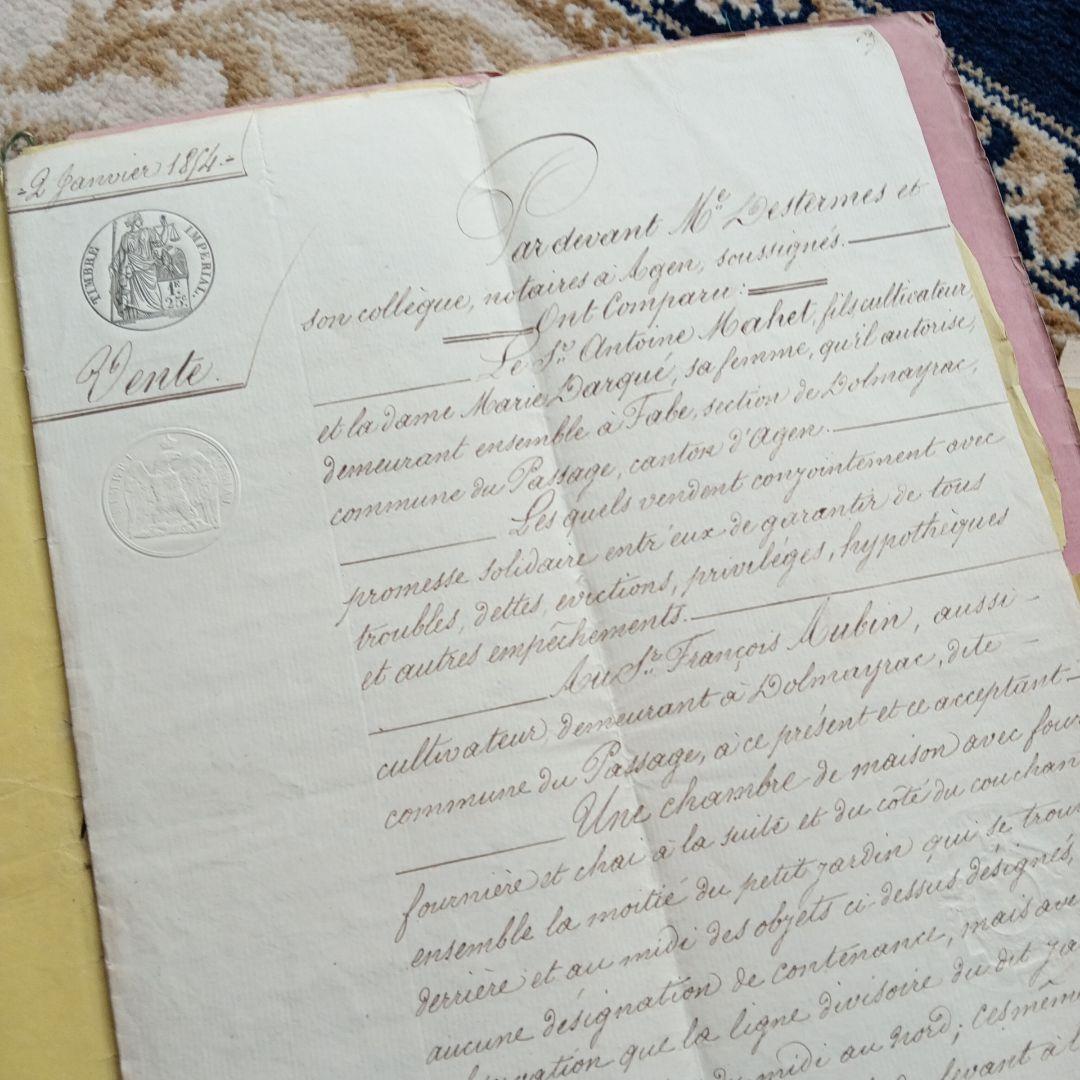 3
2 Janvier 1854.
TIMBRE IMPERIAL.
1F
25c.
Vente.
Pardevant Me. Destermes et
son collègue, notaires à Agen, soussignés.
Ont Comparu :
Le Sr. Antoine Mahet, fils cultivateur,
et la dame Marie Darqué, sa femme, qu'il autorise,
demeurant ensemble à Fabe, section de Dolmayrac,
commune du Passage, canton d'Agen.
Les quels vendent conjointement avec
promesse solidaire entr'eux de garantir de tous
troubles, dettes, evictions, priviléges, hypothèques
et autres empêchements.
Au Sr. François Aubin, aussi
cultivateur, demeurant à Dolmayrac, dite
commune du Passage, à ce présent et ce acceptant
Une chambre de maison avec four
fournière et chai à la suite et du côté du couchan
ensemble la moitié du petit jardin qui se trou
derrière et au midi des objets ci dessus désignés,
aucune désignation de contenance, mais ave
que la ligne divisoire du dit ja
midi au nord ; ces même
levant à l